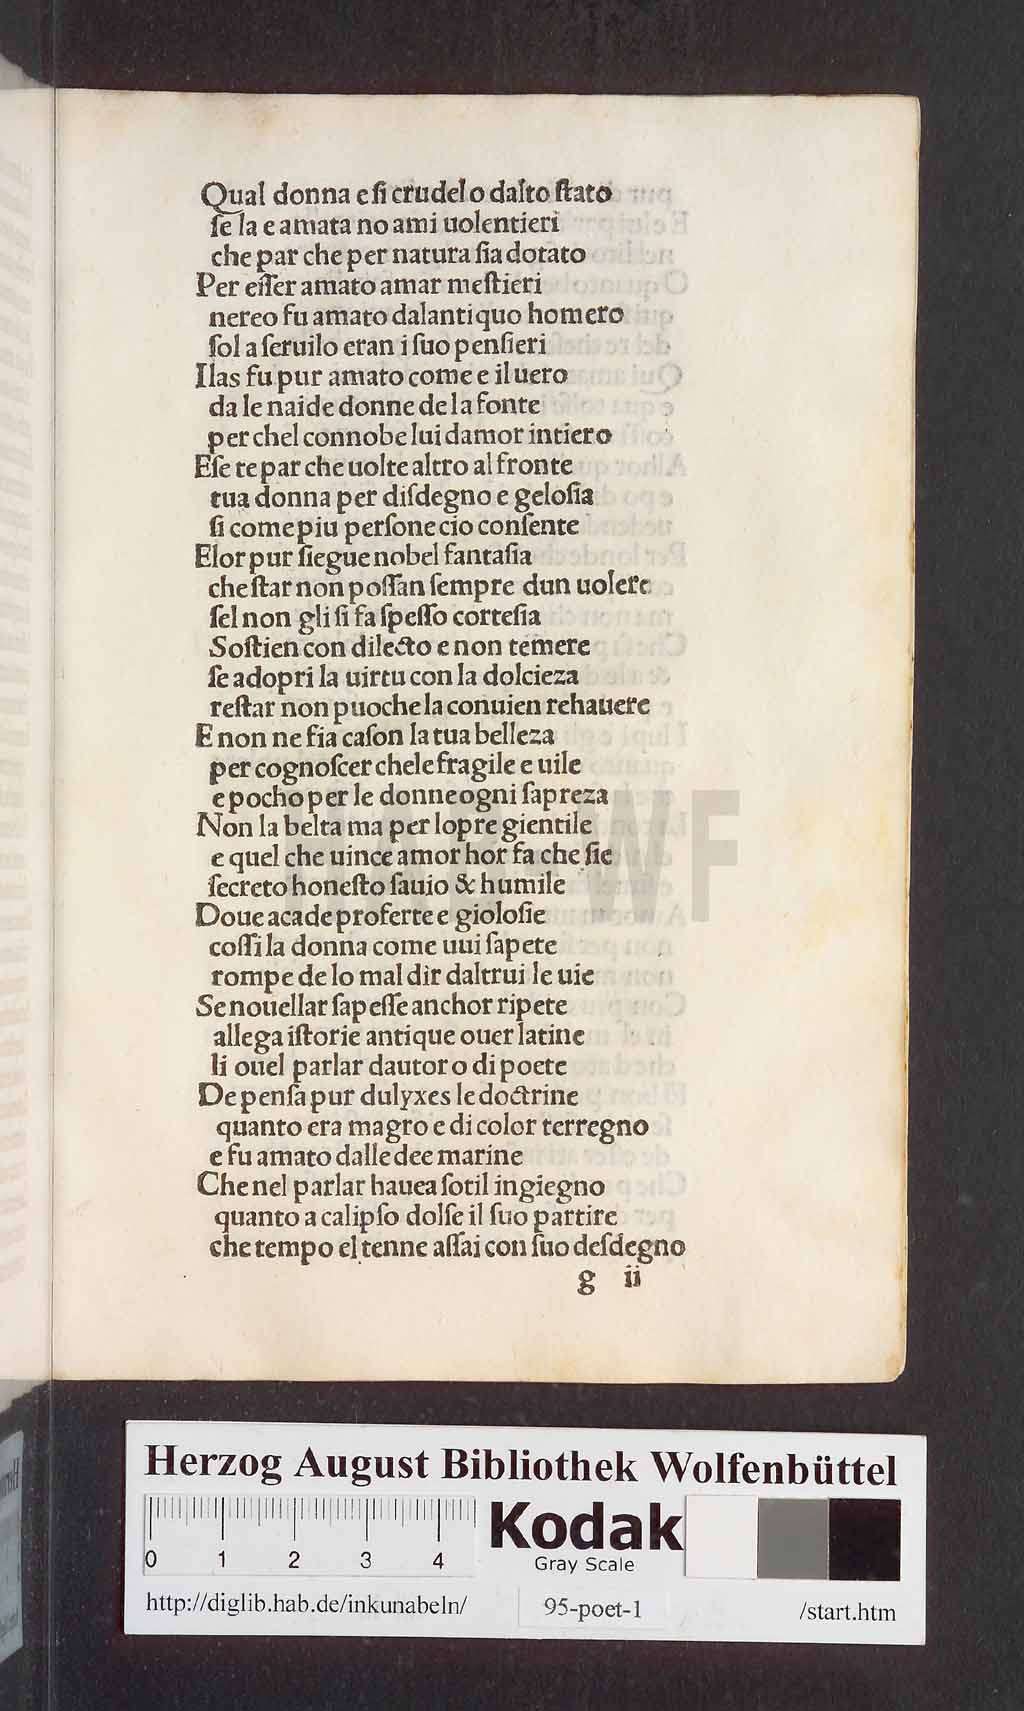 Qual donna e ſi crudel o dalto ſtato
ſe la e amata no ami uolentieri
che par che per natura ſia dotato
Per eſſer amato amar meſtieri
nereo fu amato dalantiquo homero
ſol a ſeruilo eran i ſuo penſieri
Ilas fu pur amato come e il uero
da le naide donne de la fonte
per chel connobe lui damor intiero
Eſe te par che uolte altro al fronte
tua donna per diſdegno e geloſia
ſi come piu perſone cio conſente
Elor pur ſiegue nobel fantaſia
che ſtar non poſſan ſempre dun uolere
ſel non gli ſi fa ſpeſſo corteſia
Soſtien con dilecto e non temere
ſe adopri la uirtu con la dolcieza
reſtar non puo che la conuien rehauere
E non ne fia caſon la tua belleza
per cognoſcer chele fragile e uile
e pocho per le donne ogni ſapreza
Non la belta ma per lopre gientile
e quel che uince amor hor fa che ſie
ſecreto honeſto ſauio & humile
Doue acade proferte e gioloſie
coſſi la donna come uui ſapete
rompe de lo mal dir daltrui le uie
Se nouellar ſapeſſe anchor ripete
allega iſtorie antique ouer latine
li ouel parlar dautor o di poete
De penſa pur dulyxes le doctrine
quanto era magro e di color terregno
e fu amato dalle dee marine
Che nel parlar hauea ſotil ingiegno
quanto a calipſo dolſe il ſuo partire
che tempo el tenne aſſai con ſuo deſdegno
g ii
HAB-WF
Herzog August Bibliothek Wolfenbüttel
0 1 2 3 4
Kodak
Gray Scale
http://diglib.hab.de/inkunabeln/ 95-poet-1 /start.htm